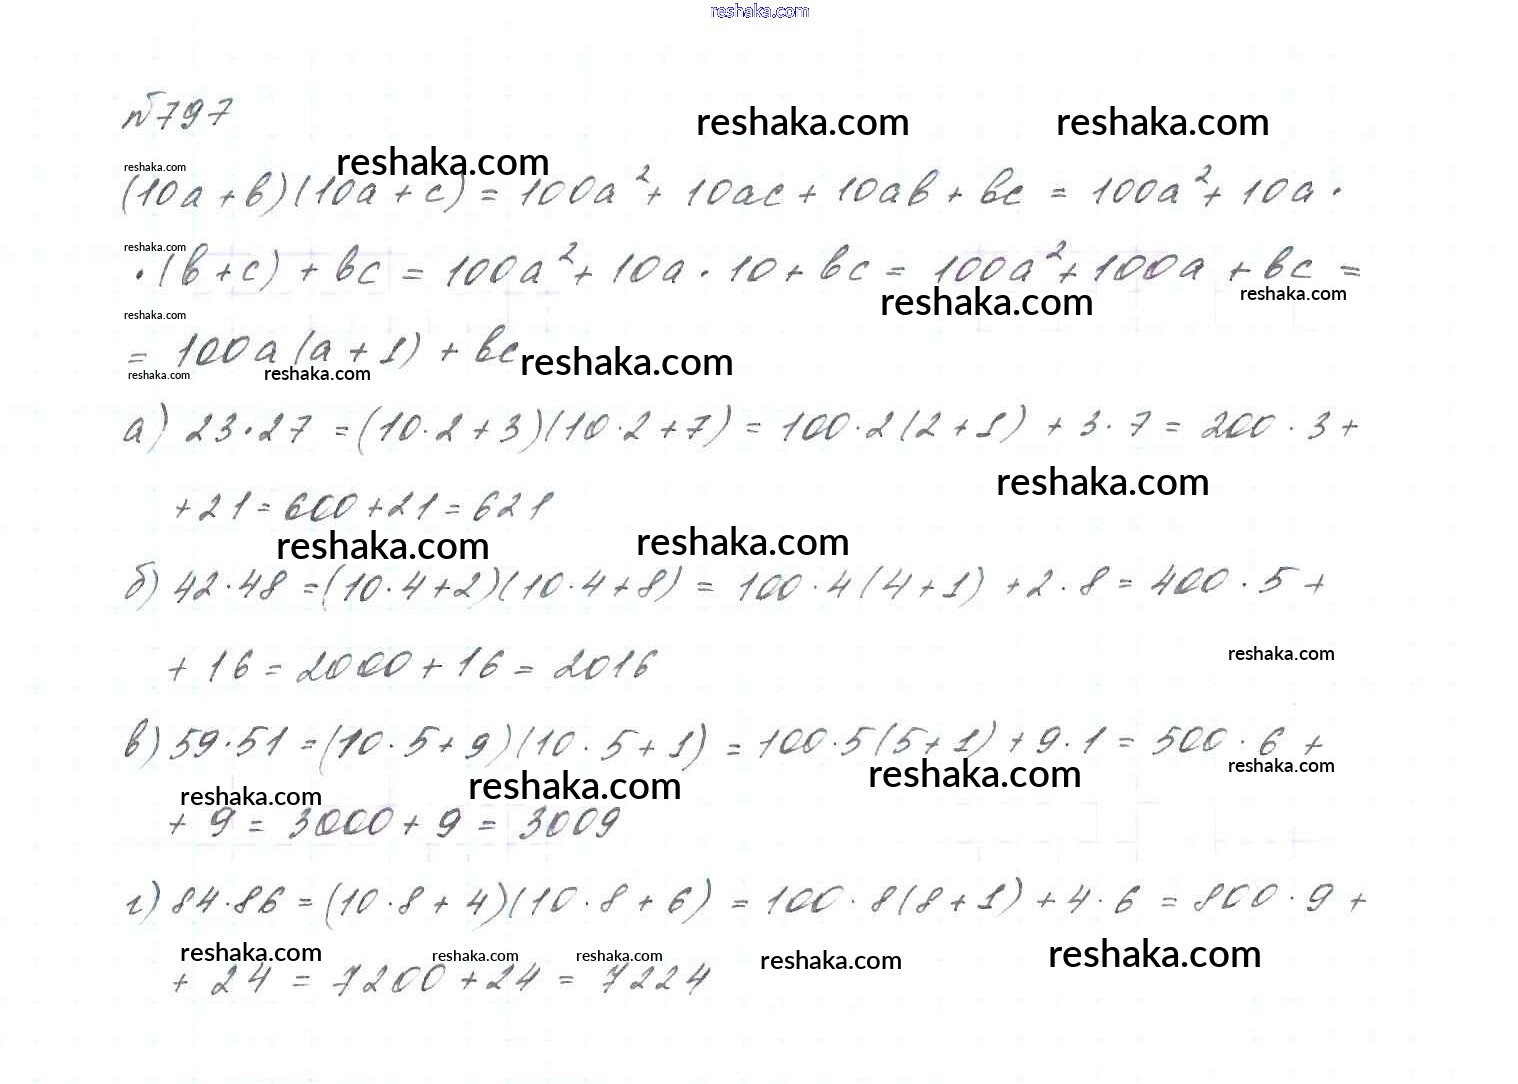 reshaka.com
№797
reshaka.com reshaka.com
reshaka.com reshaka.com
(10a + b)(10a + c) = 100a² + 10ac + 10ab + bc = 100a² + 10a ·
reshaka.com
· (b + c) + bc = 100a² + 10a · 10 + bc = 100a² + 100a + bc =
reshaka.com reshaka.com reshaka.com
= 100a(a + 1) + bc reshaka.com
reshaka.com reshaka.com
а) 23·27 = (10·2 + 3)(10·2 + 7) = 100·2(2 + 1) + 3·7 = 200 · 3 +
reshaka.com
+ 21 = 600 + 21 = 621
reshaka.com reshaka.com
б) 42·48 = (10·4 + 2)(10·4 + 8) = 100·4(4 + 1) + 2·8 = 400 · 5 +
+ 16 = 2000 + 16 = 2016 reshaka.com
в) 59·51 = (10·5 + 9)(10·5 + 1) = 100·5(5 + 1) + 9·1 = 500 · 6 +
reshaka.com reshaka.com reshaka.com reshaka.com
+ 9 = 3000 + 9 = 3009
г) 84·86 = (10·8 + 4)(10·8 + 6) = 100 · 8(8 + 1) + 4·6 = 800 · 9 +
reshaka.com reshaka.com reshaka.com reshaka.com reshaka.com
+ 24 = 7200 + 24 = 7224